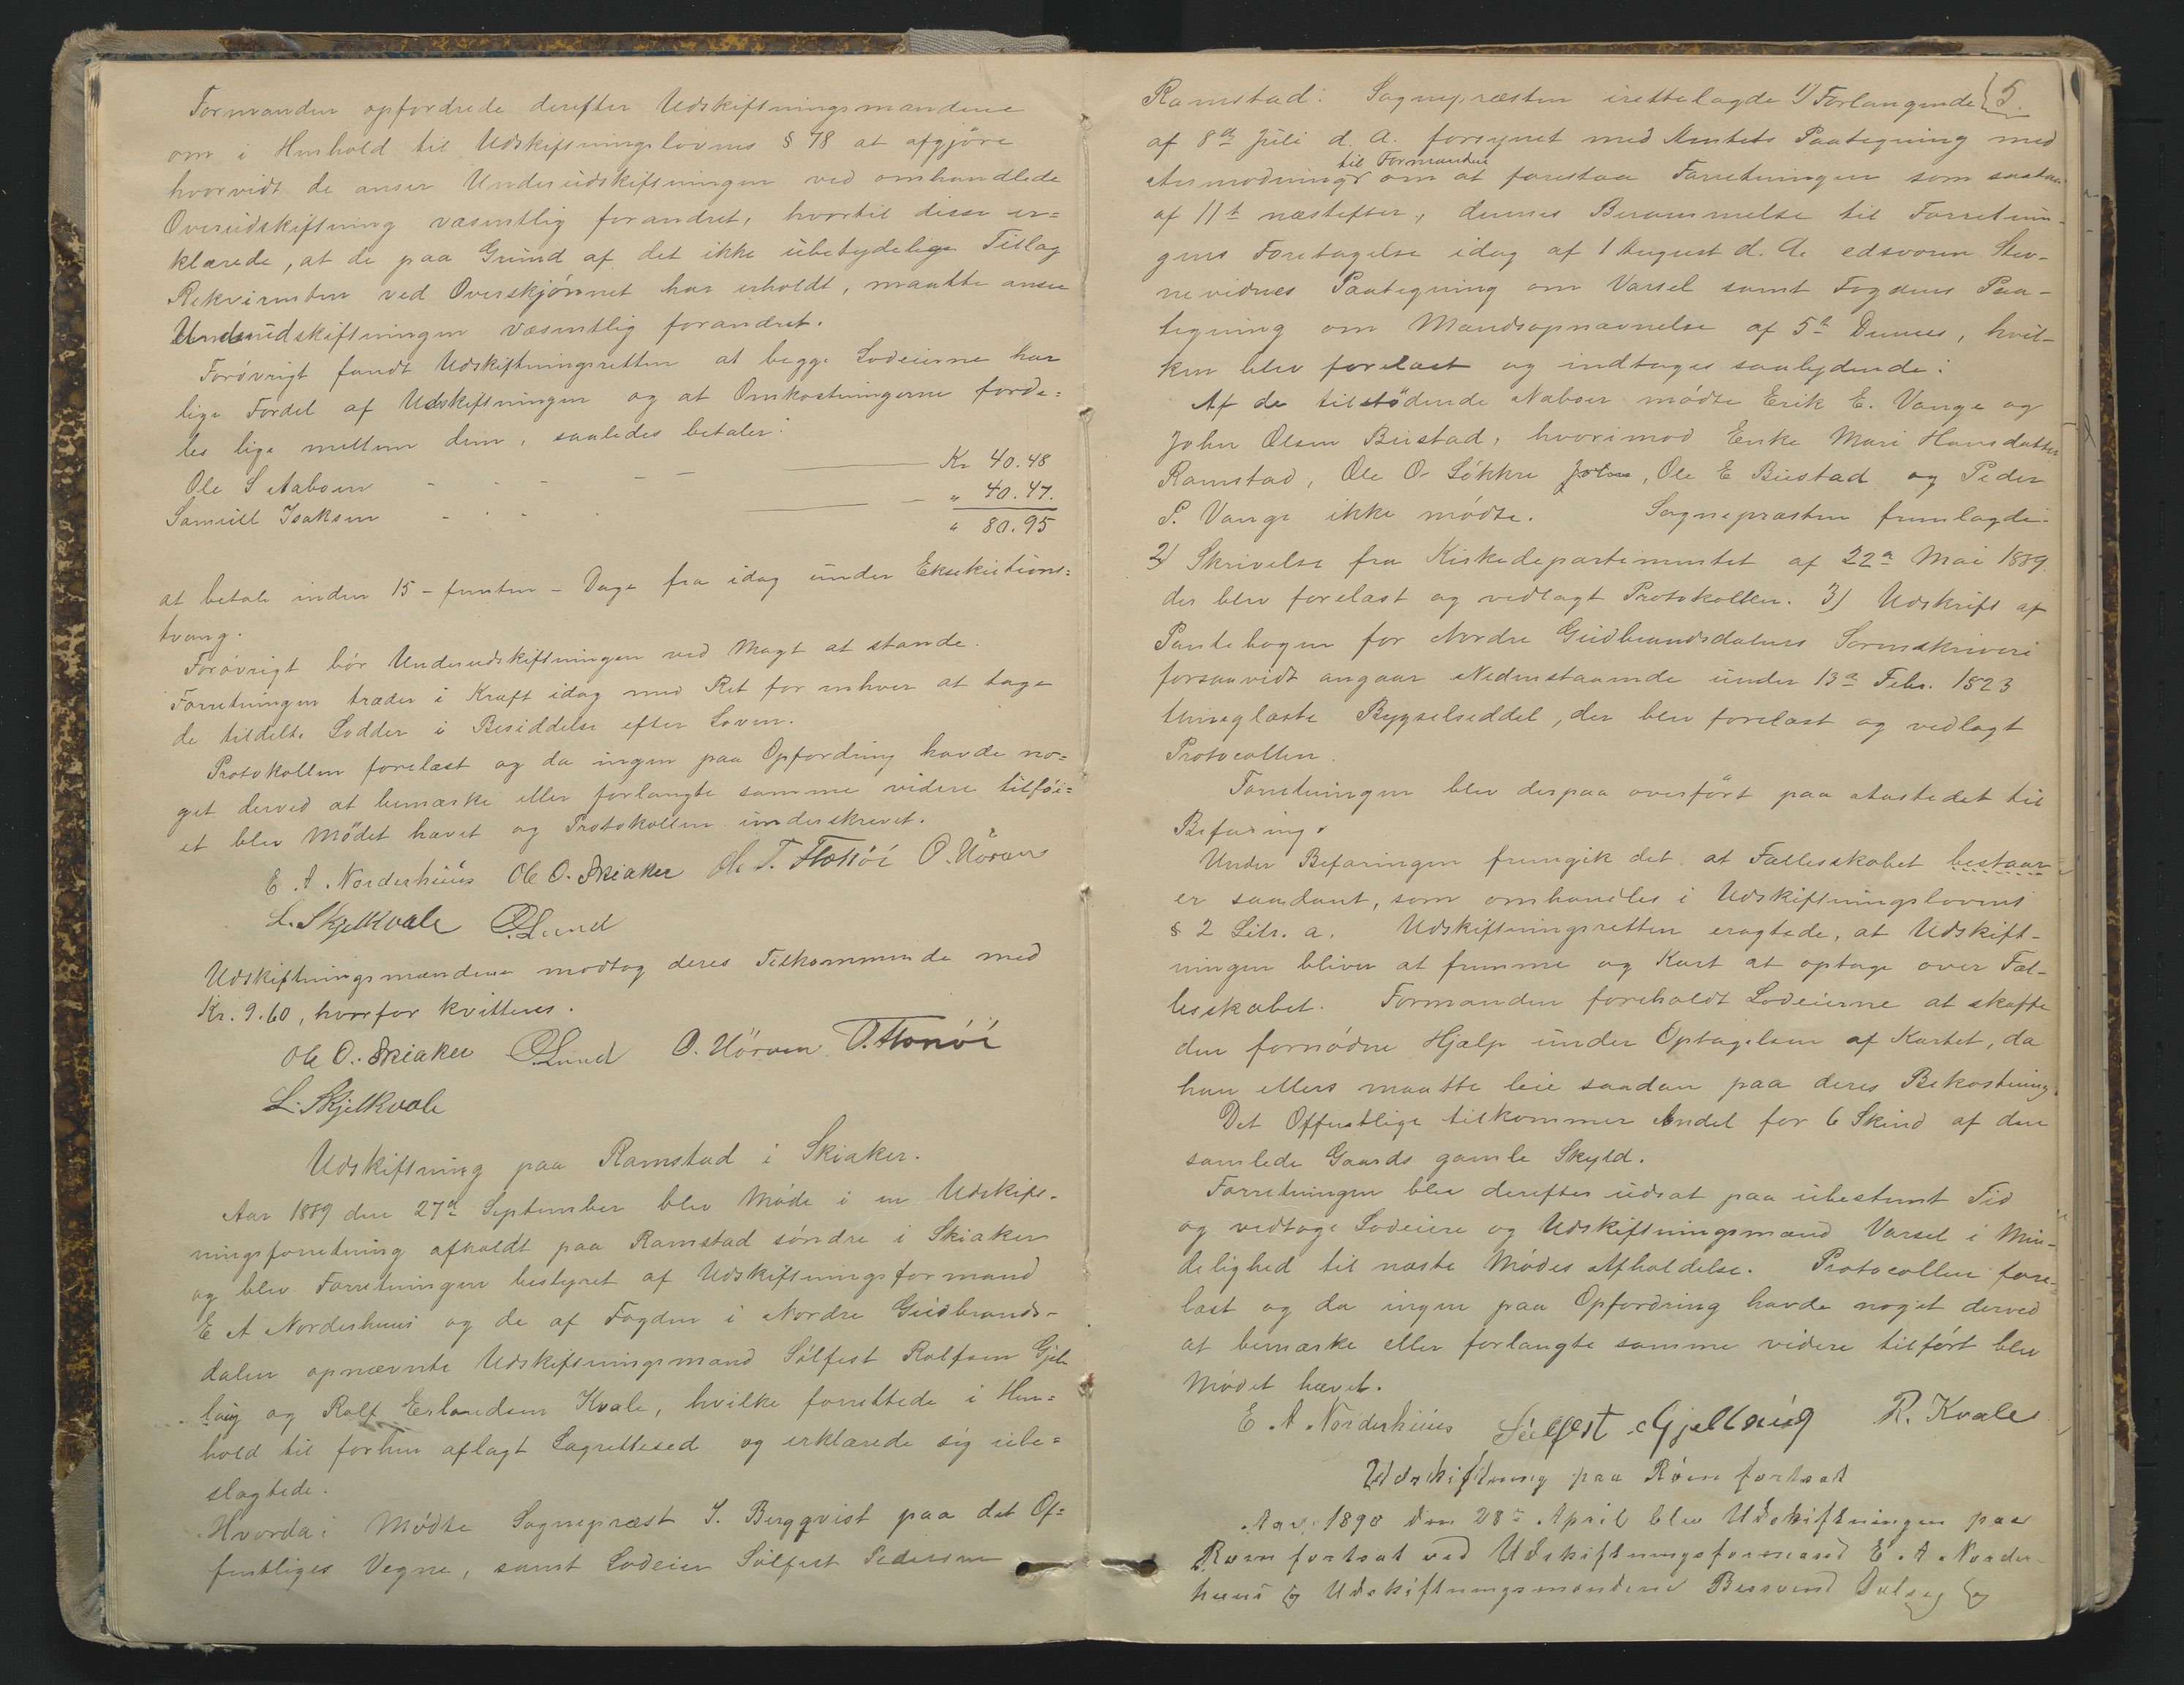 Formanden opfordrede derefter Udskiftningsmændene
om i Henhold til Udskiftningslovens § 78 at afgjøre
hvorvidt de anser Underudskiftningen ved omhandlede
Overudskiftning væsentlig forandret, hvortil disse er=
klærede, at de paa Grund af det ikke ubetydelige Tillæg
Rekvirenten ved Overskjønnet har erholdt, maatte anse
Underudskiftningen væsentlig forandret.
Forøvrigt fandt Udskiftningsretten at begge Lodeierne har
lige Fordel af Udskiftningen og at Omkostningerne forde=
les lige mellem dem, saaledes betaler:
Ole S Aaboen - - - - Kr 40.48
Samuel Isaksen - - - - " 40.47.
" 80.95
at betale inden 15 - femten - Dage fra idag under Eksekutions=
tvang.
Forøvrigt bør Underudskiftningen ved Magt at stande.
Forretningen træder i Kraft idag med Ret for enhver at tage
de tildelte Lodder i Besiddelse efter Loven.
Protokollen forelæst og da ingen paa Opfordring havde no=
get derved at bemærke eller forlangte samme videre tilføi=
et blev Mødet hævet og Protokollen underskrevet.
E. A. Norderhuus Ole O. Skiaker O. Uöraen
L. Skjelkvale O Lund
Udskiftningsmændene modtog deres Tilkommende med
Kr. 9.60, hvorfor kvitteres.
Ole O. Skiaker O Lund O. Uörven
L. Skjelkvale
Udskiftning paa Ramstad i Skiaker.
Aar 1889 den 27de September blev Møde i en Udskift-
ningsforretning afholdt paa Ramstad søndre i Skiaker
og blev Forretningen bestyret af Udskiftningsformand
E A Norderhuus og de af Fogden i Nordre Gudbrands-
dalen opnævnte Udskiftningsmænd Sølfest Rolfsen Gjel
laug og Rolf Erlandsen Kvale, hvilke forrettede i Hen=
hold til forhen aflagt Lagretteseed og erklærede sig ube=
slægtede.
Hvorda: Mødte Sognepræst J. Bergqvist paa det Of=
fentliges Vegne, samt Lodeier Sølfest Pedersen
5.
Ramstad. Sognepræsten irettelagde 1) Forlangende
af 8de Juli d. A. forsynet med Amtets Paategning med
til Formanden
Anmodning om at forestaa Forretningen som saadan
af 11te næstefter, dennes Berammelse til Forretnin-
gens Foretagelse idag af 1 August d. A. edsvoren Stev-
nevidnes Paategning om Varsel samt Fogdens Paa-
tegning om Mandsopnævnelse af 5te Dennes, hvil-
ken blev forelæst og indtages saalydende:
Af de tilstödende Naboer mødte Erik E. Vange og
John Olsen Bustad, hvorimod Enke Mari Hansdatter
Ramstad, Ole O. Løkkre John, Ole E Bustad og Peder
P. Vange ikke mødte. Sognepræsten fremlagde
2) Skrivelse fra Kirkedepartementet af 22de Mai 1889
der blev forelæst og vedlagt Protokollen. 3) Udskrift af
Pantebogen for Nordre Gudbrandsdalens Sorenskriveri
forsaavidt angaar Nedenstaaende under 13de Febr. 1823
thinglæste Bygselseddel, der blev forelæst og vedlagt
Protocollen.
Forretningen blev derpaa overført paa Aastedet til
Befaring.
Under Befaringen fremgik det at Fællesskabet bestaar
er saadant, som omhandles i Udskiftningslovens
§ 2 Litr. a. Udskiftningsretten eragtede, at Udskift-
ningen bliver at fremme og Kart at optage over Fæl-
lesskabet. Formanden foreholdt Lodeierne at skaffe
den fornødne Hjælp under Optagelsen af Kartet, da
han ellers maatte leie saadan paa deres Bekostning.
Det Offentlige tilkommer Andel for 6 Skind af den
samlede Gaards gamle Skyld.
Forretningen blev derefter udsat paa ubestemt Tid
og vedtoge Lodeiere og Udskiftningsmænd Varsel i Min-
delighed til næste Mødes Afholdelse. Protocollen fore-
læst og da ingen paa Opfordring havde noget derved
at bemærke eller forlangte samme videre tilført blev
Mødet hævet.
E. A Norderhuus Sülfest Gjellaúg R. Kvale
Udskiftning paa Røen fortsat
Aar 1890 den 28de April blev Udskiftningen paa
Røen fortsat ved Udskiftningsformand E. A Norder-
huus og Udskiftningsmændene Dalseg og